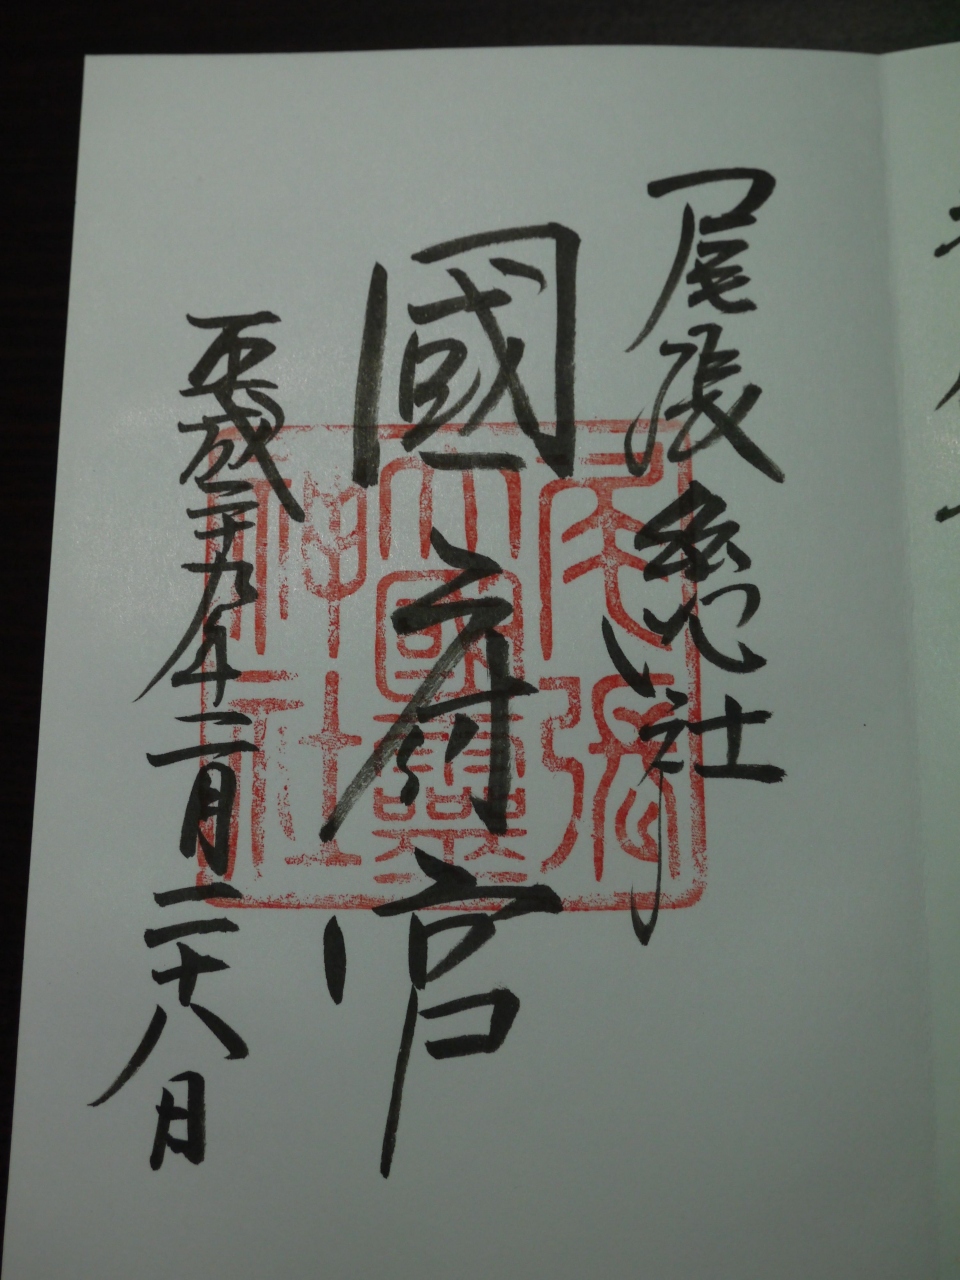 尾張総社
國府宮
平成二十九年二月二十八日
尾張
大國霊
神社